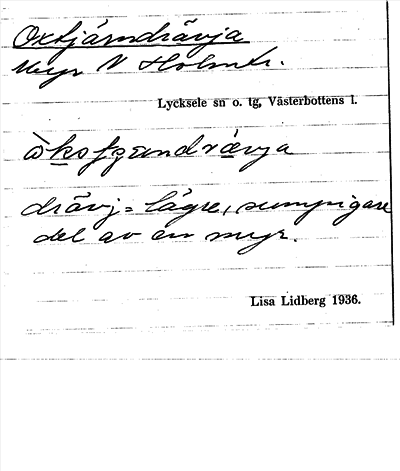 Oxtjärndrävja
Myr N Holmtr.
Lycksele sn o. tg, Västerbottens l.
drävj = lägre, sumpigare
del av en myr.
Lisa Lidberg 1936.